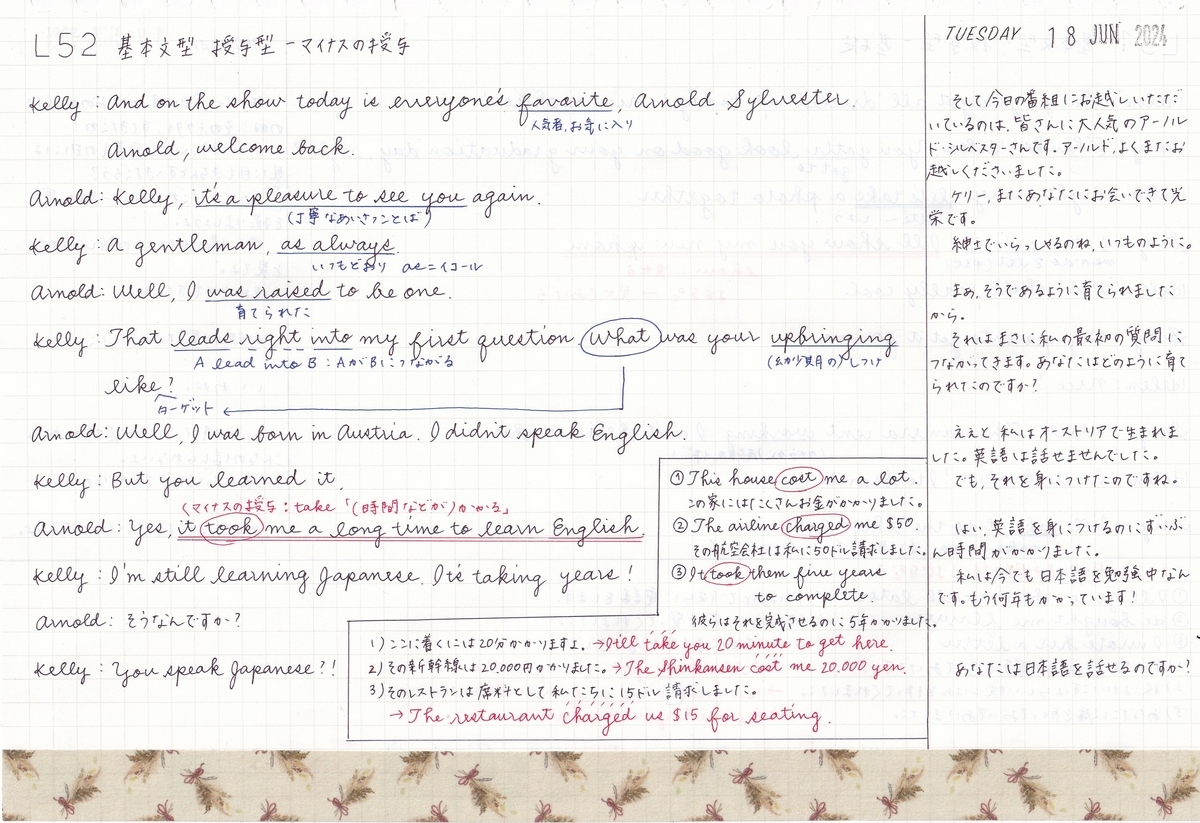 L52 基本文型 授与型 - マイナスの授与
TUESDAY 18 JUN 2024
Kelly : And on the show today is everyone's favorite, Arnold Sylvester.
人気者, お気に入り
Arnold, welcome back.
Arnold: Kelly, it's a pleasure to see you again.
(丁寧なあいさつことば)
Kelly : A gentleman, as always.
いつもどおり as=イコール
Arnold: Well, I was raised to be one.
育てられた
Kelly : That leads right into my first question. What was your upbringing
A lead into B : AがBにつながる
(幼少期の)しつけ
like?
ターゲット
Arnold: Well, I was born in Austria. I didn't speak English.
Kelly : But you learned it.
(マイナスの授与 : take「(時間などが)かかる」
Arnold: Yes, it took me a long time to learn English.
Kelly : I'm still learning Japanese. It's taking years!
Arnold : そうなんですか?
Kelly : You speak Japanese?!
① This house cost me a lot.
この家にはたくさんお金がかかりました。
② The airline charged me $50.
その航空会社は私に50ドル請求しました。
③ It took them five years
to complete.
彼らはそれを完成させるのに5年かかりました。
1) ここに着くには20分かかりますよ。→It'll take you 20 minute to get here.
2) その新幹線は20,000円かかりました。→The Shinkansen cost me 20.000 yen.
3) そのレストランは席料として私たちに15ドル請求しました。
→ The restaurant charged us $15 for seating.
そして今日の番組にお越しいただ
いているのは、皆さんに大人気のアーノル
ド・シルベスターさんです。アーノルド、よくまたお
越しくださいました。
ケリー、またあなたにお会いできて光
栄です。
紳士でいらっしゃるのね、いつものように。
まぁ、そうであるように育てられました
から。
それはまさに私の最初の質問に
つながってきます。あなたはどのように育て
られたのですか?
ええと 私はオーストリアで生まれま
した。英語は話せませんでした。
でも、それを身につけたのですね。
はい、英語を身につけるのにずいぶ
ん時間がかかりました。
私は今でも日本語を勉強中なん
です。もう何年もかかっています!
あなたは日本語を話せるのですか?